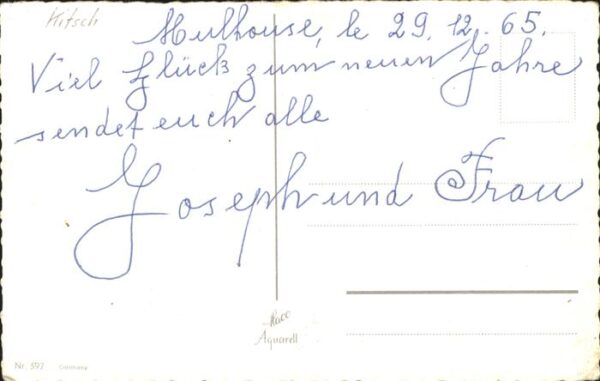 Kitsch
Mulhouse, le 29.12.65.
Viel Glück zum neuen Jahre
sendet euch alle
Joseph und Frau
Aquarell
Nr. 392 Germany